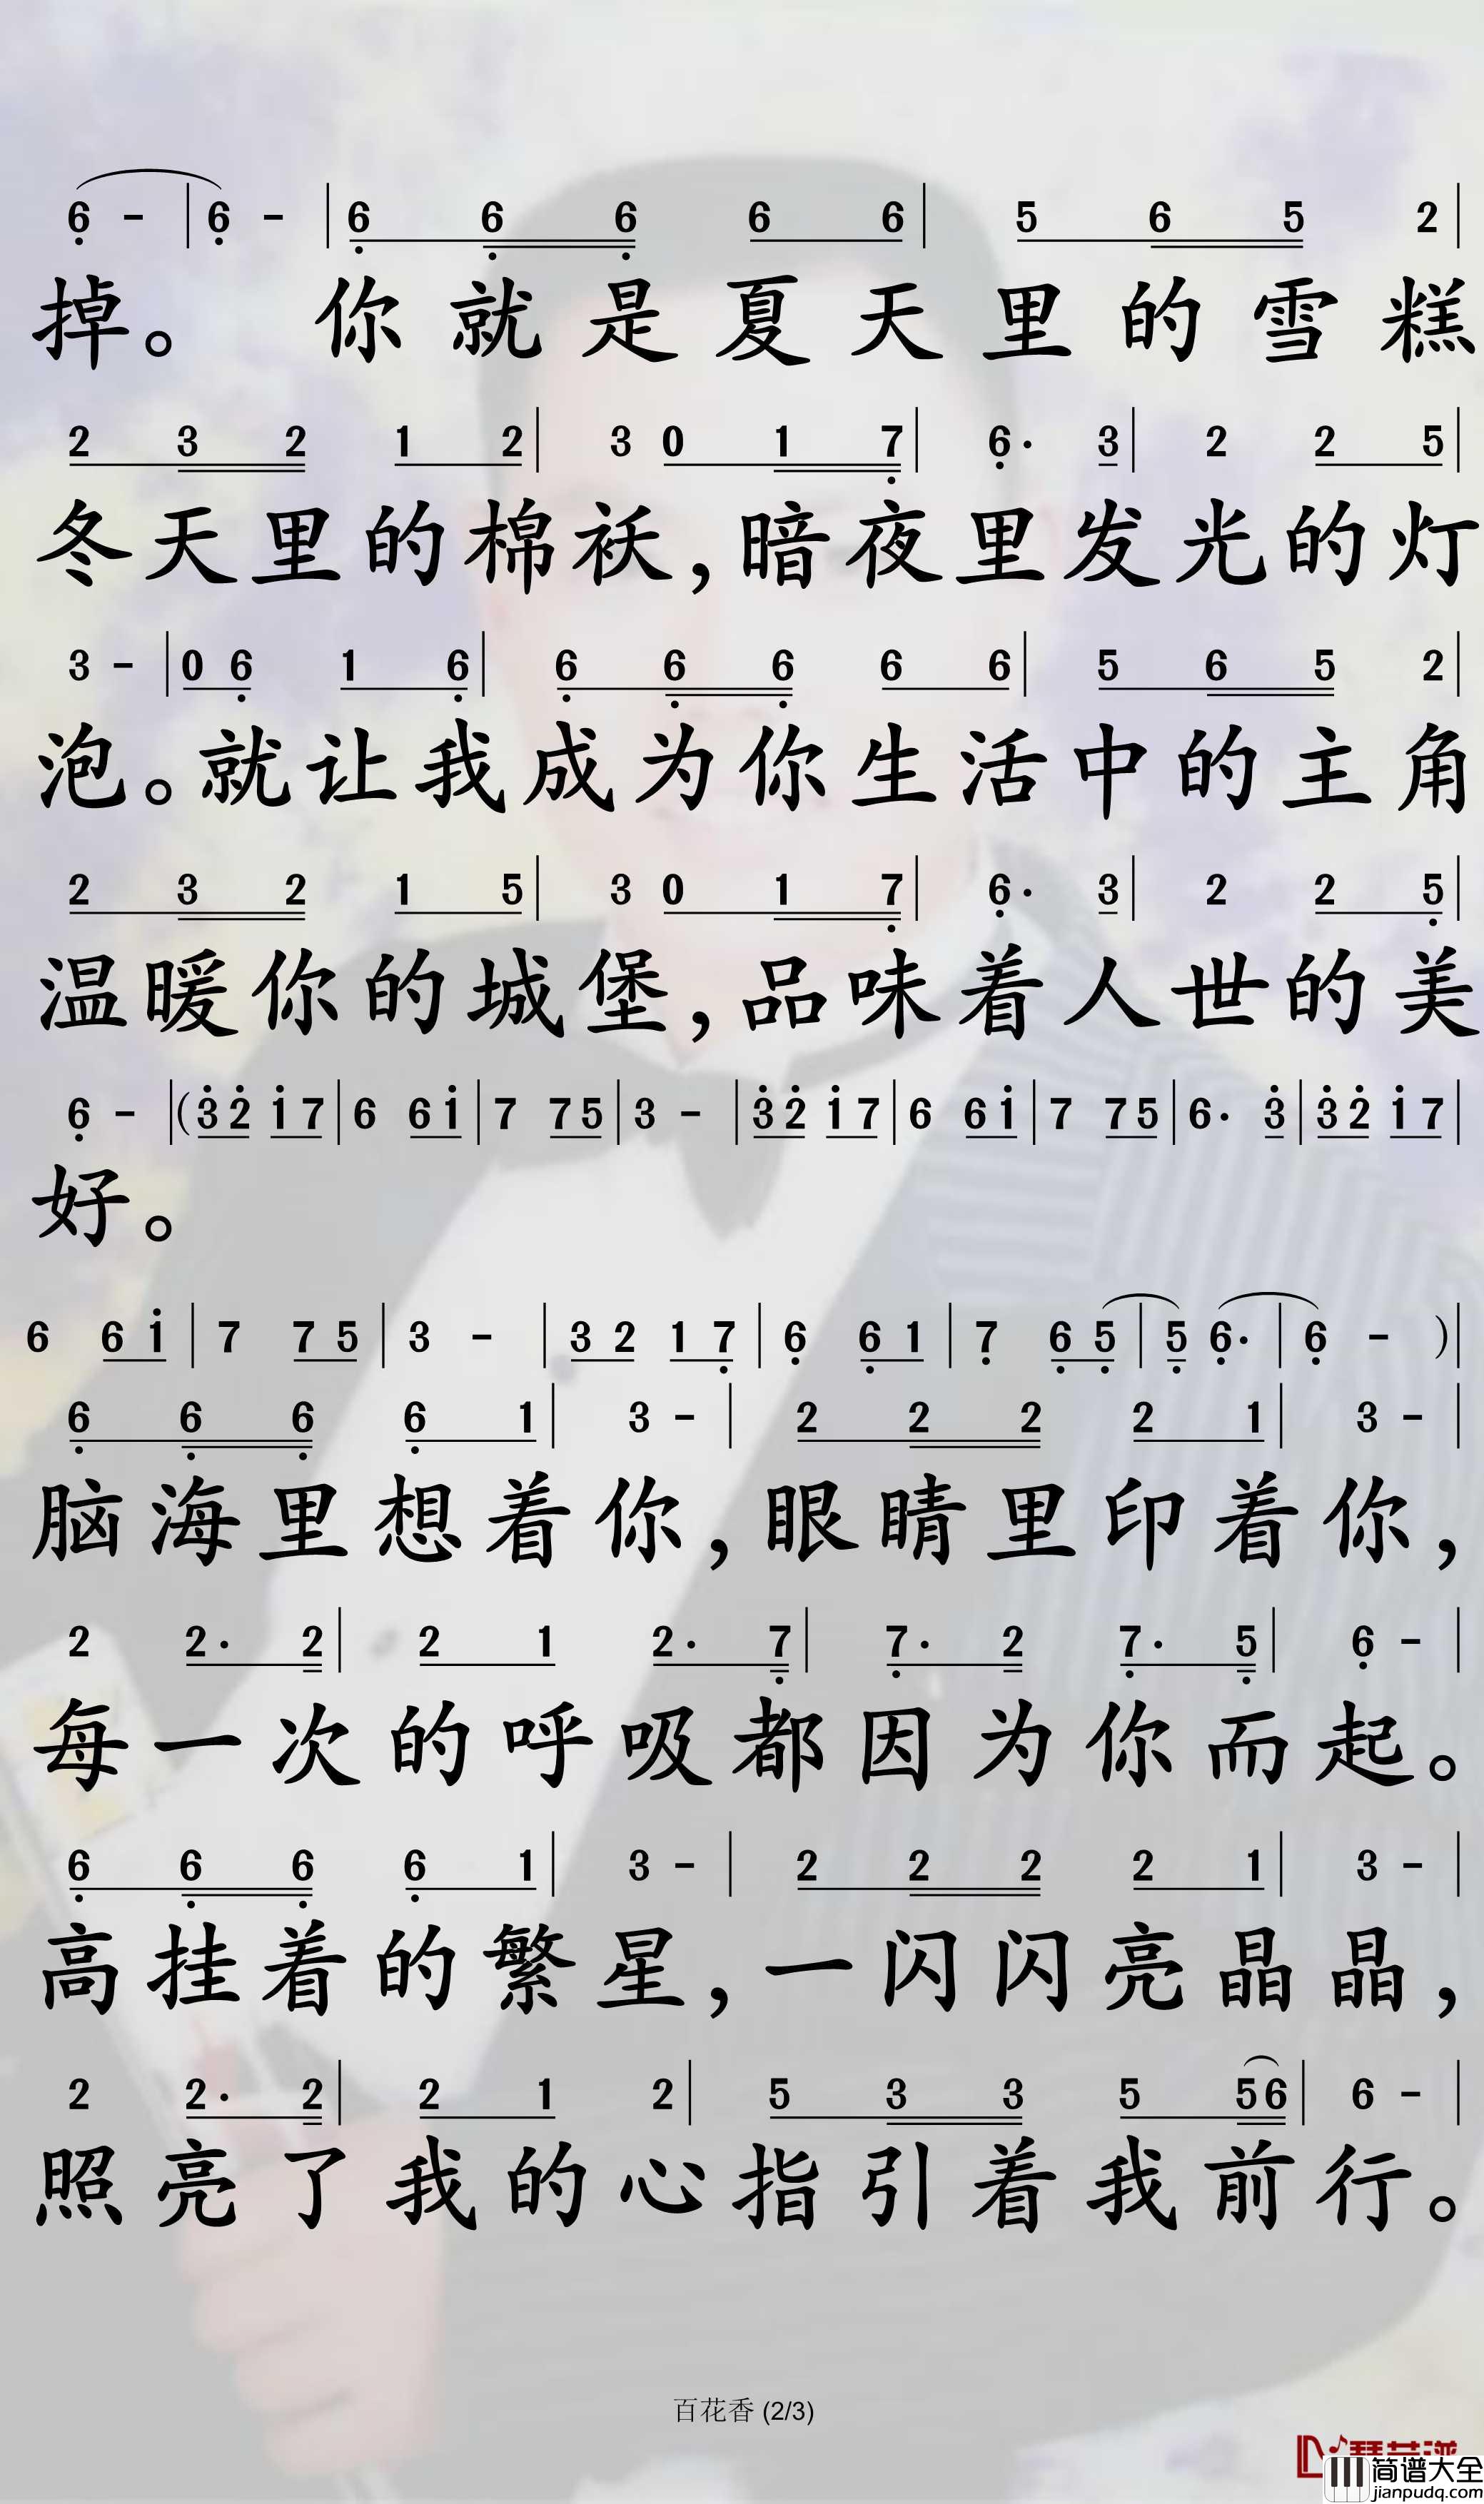 6 - | 6 - | 6 6 6 6 6 | 5 6 5 2 |
掉。 你就是夏天里的雪糕
2 3 2 1 2 | 3 0 1 7 | 6· 3 | 2 2 5 |
冬天里的棉袄,暗夜里发光的灯
3 - | 0 6 1 6 | 6 6 6 6 6 | 5 6 5 2 |
泡。就让我成为你生活中的主角
2 3 2 1 5 | 3 0 1 7 | 6· 3 | 2 2 5 |
温暖你的城堡,品味着人世的美
6 - | (3 2 1 7 | 6 6 1 | 7 7 5 | 3 - | 3 2 1 7 | 6 6 1 | 7 7 5 | 6· 3 | 3 2 1 7 |
好。
6 6 1 | 7 7 5 | 3 - | 3 2 1 7 | 6 6 1 | 7 6 5 | 5 6· | 6 - ) |
6 6 6 6 1 | 3 - | 2 2 2 2 1 | 3 - |
脑海里想着你,眼睛里印着你,
2 2· 2 | 2 1 2· 7 | 7· 2 7· 5 | 6 - |
每一次的呼吸都因为你而起。
6 6 6 6 1 | 3 - | 2 2 2 2 1 | 3 - |
高挂着的繁星,一闪闪亮晶晶,
2 2· 2 | 2 1 2 | 5 3 3 5 5 6 | 6 - |
照亮了我的心指引着我前行。
百花香 (2/3)
简谱大全
jianpudq.com